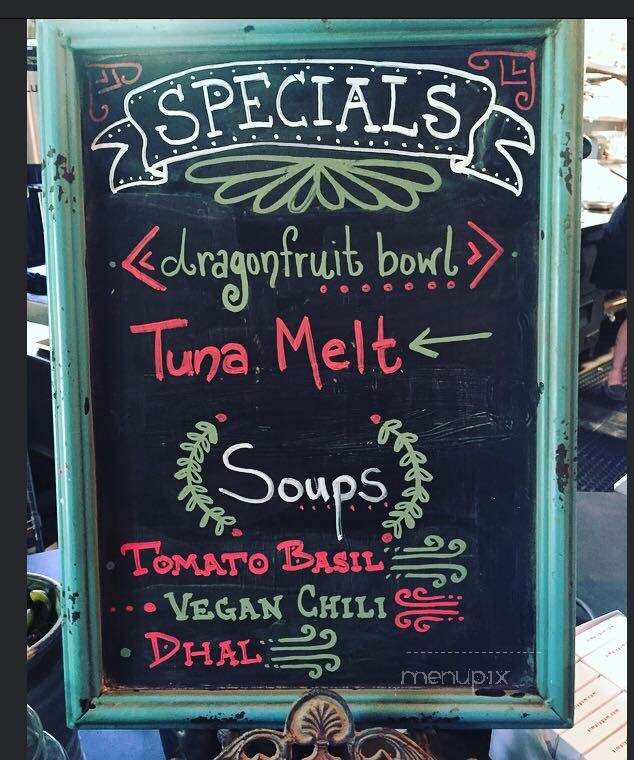 SPECIALS
dragonfruit bowl
Tuna Melt
Soups
TOMATO BASIL
VEGAN CHILI
DHAL
menupix